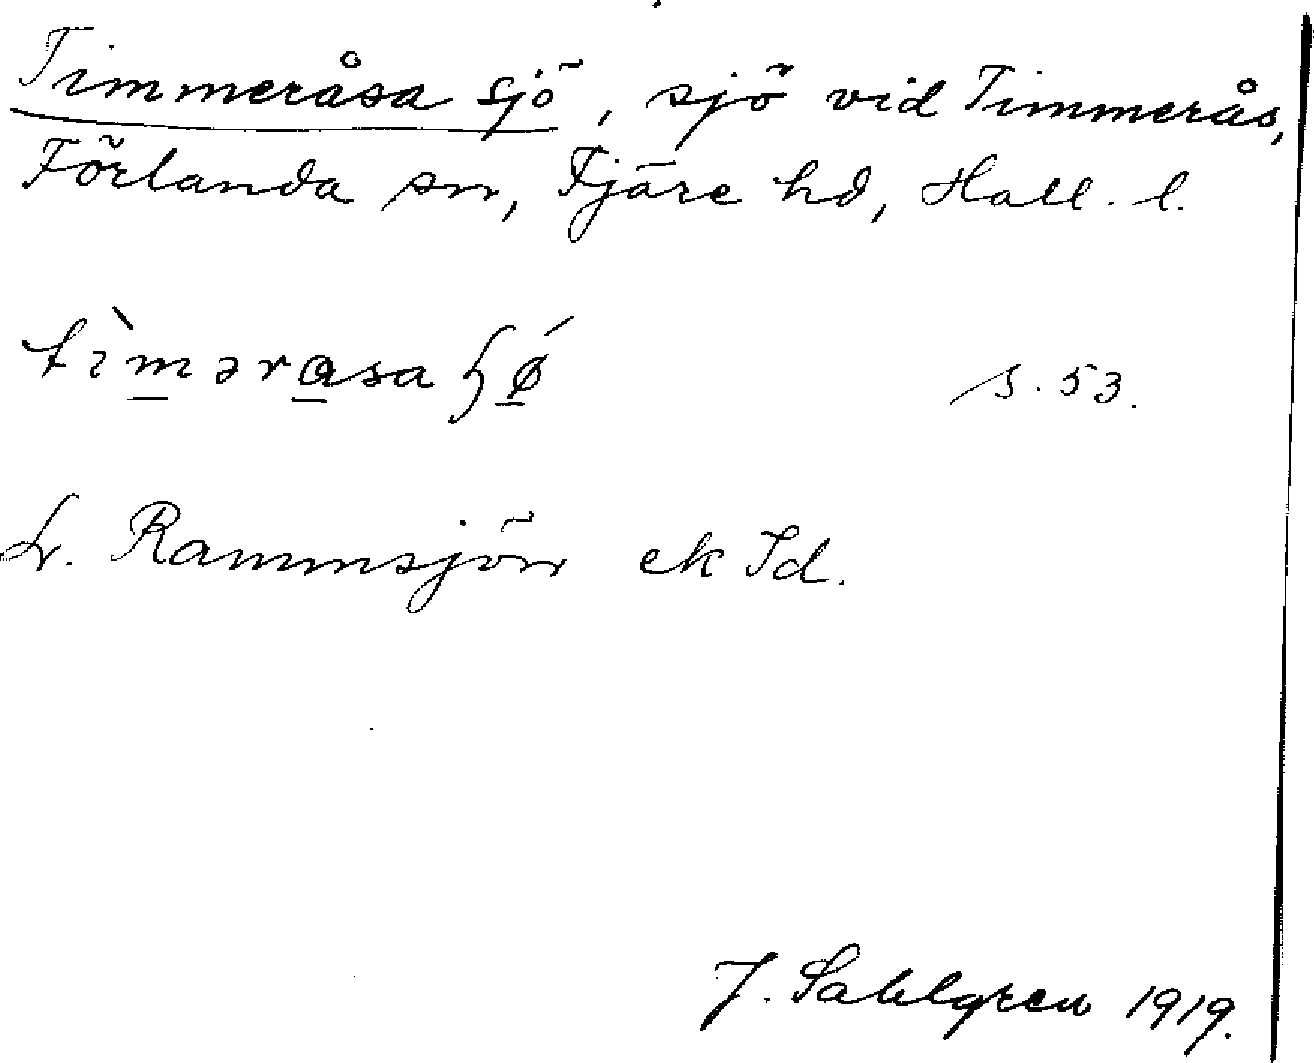 Timmeråsa sjö, sjö vid Timmerås,
Förlanda sn, Fjäre hd, Hall. l.
tìmərɑsa ɧǿ s. 53.
L. Rammsjön ek Id.
J. Sahlgren 1919.